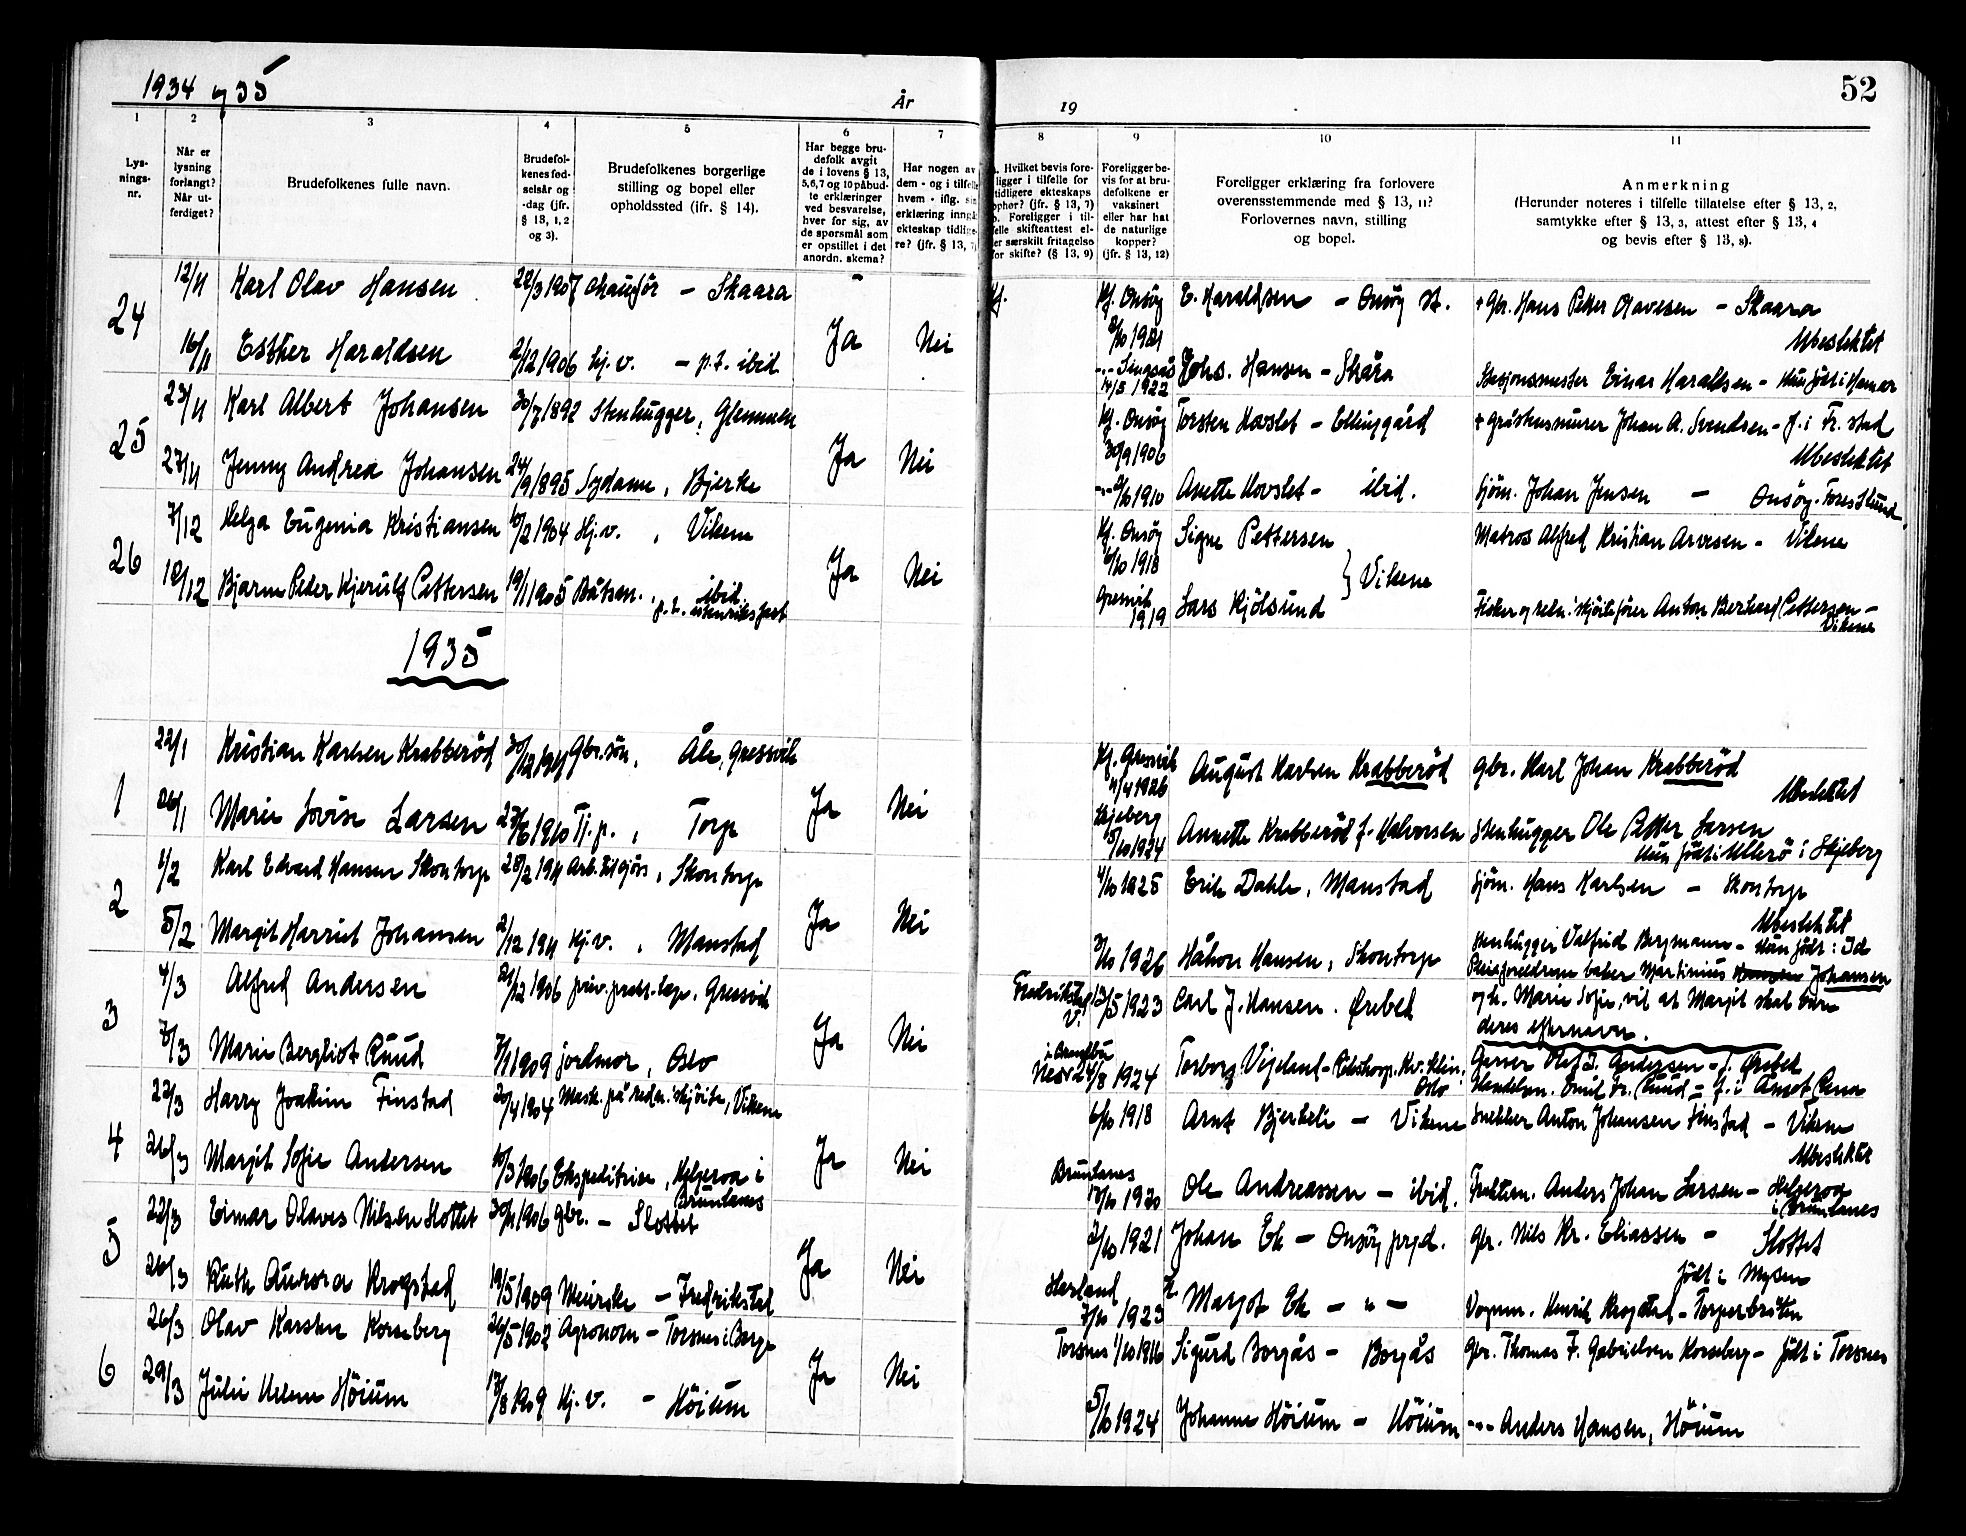 1934 og 35
År
19
52
1 2 3 4 5 6 7 8 9 10 11
Lys-
nings-
nr.
Når er
lysning
forlangt?
Når ut-
ferdiget?
Brudefolkenes fulle navn.
Brudefol-
kenes fød-
selsår og
-dag (jfr.
§ 13, 1, 2
og 3).
Brudefolkenes borgerlige
stilling og bopel eller
opholdssted (ifr. § 14).
Har begge bru-
defolk avgit
de i lovens § 13,
5, 6, 7 og 10 påbud-
te erklæringer
ved besvarelse,
hver for sig, av
de spørsmål som
er opstillet i det
anordn. skema?
Har nogen av
dem - og i tilfelle
hvem - iflg. sin
erklæring inngåt
ekteskap tidlige-
re? (jfr. § 13, 7)
Hvilket bevis fore-
ligger i tilfelle for
tidligere ekteskaps
ophør? (jfr. § 13, 7)
b. Foreligger i til-
felle skifteattest el-
ler særskilt fritagelse
for skifte? (§ 13, 9)
Foreligger be-
vis for at bru-
defolkene er
vaksinert
eller har hat
de naturlige
kopper?
(jfr. § 13, 12)
Foreligger erklæring fra forlovere
overensstemmende med § 13, 11?
Forlovernes navn, stilling
og bopel.
Anmerkning
(Herunder noteres i tilfelle tillatelse efter § 13, 2,
samtykke efter § 13, 3, attest efter § 13, 4
og bevis efter § 13, 8).
24 12/11 Karl Olav Hansen 22/3 1907 Chauffør - Skaara Kf. Onsøy E. Haraldsen - Onsøy st. + Gbr. Hans Petter Olavesen - Skaara
2/10 1921 Ubeslektet
16/11 Esther Haraldsen 2/12 1906 Hj.v. - p.t. ibid Ja Nei 14/5 1922 Johs. Hansen - Skåra Stasjonsmester Einar Haraldsen - Hun født i Hamar
25 23/11 Karl Albert Johansen 30/7 1892 Stenhugger, Glemmen Kf. Onsøy Torsten Hovslet - Ellingård + gråstensmurer Johan A. Svendsen - f. i Fr.stad
30/9 1906 Ubeslektet
27/11 Jenny Andrea Johansen 24/9 1895 Sydame, Bjerke Ja Nei 2/10 1910 Anette Hovslet - ibid. Sjøm. Johan Jensen - Onsøy.
26 7/12 Helga Eugenia Kristiansen 10/2 1904 Hj.v. , Vikene Kf. Onsøy Signe Pettersen Matros Alfred Kristian Arvesen - Vikene
6/10 1918 Vikene
10/12 Bjarne Peder Kjerulf Pettersen 19/1 1905 Båtsm., ibid. Ja Nei Gressvik 1919 Lars Kjølsund Fisker og redn.skøitefører Anton Berhard Pettersen -
Vikene
1935
1 22/1 Kristian Karlsen Krabberød Gbr.søn, Åle, Gressvik Kf. Gressvik August Karlsen Krabberød Gbr. Karl Johan Krabberød
11/4 1926 Ubeslektet
26/1 Marie Lovise Larsen 27/6 1910 Tj.p. , Torp Ja Nei Skjeberg 5/10 1924 Annette Krabberød f. Halvorsen Stenhugger Ole Petter Larsen
Hun født i Ullerø i Skjeberg
2 1/2 Karl Edvard Hansen Skontorp 28/2 1911 Arb. tilgjørs, Skontorp 4/10 1925 Erik Dahle, Manstad Sjøm. Hans Karlsen - Skontorp
Ubeslektet
5/2 Margit Harriet Johansen 2/12 1911 Hj.v. , Manstad Ja Nei 3/10 1926 Håkon Hansen, Skontorp Stenhugger Valfrid Bergmann - Hun født i Id
Pleieforeldrene baker Martinius Johansen
og h. Marie Sofie, vil at Margit skal bære
deres efternavn.
3 4/3 Alfred Andersen 21/12 1906 priv. prakt. læge, Gressvik Fredrikstad V. 13/5 1923 Carl J. Hansen. Ørebek Garver Olaf I. Andersen - f. Ørebek
7/3 Marie Bergliot Ruud 7/1 1909 jordmor, Oslo Ja Nei 24/8 1924 Torborg Vigeland - Oslo Handelsm. Emil Fr. Ruud - f. i Åmot Rena
4 22/3 Harry Joakim Finstad 20/4 1904 Mask. på redn.skøite, Vikene 6/10 1918 Arnt Bjerkeli - Vikene Snekker Anton Johansen Finstad - Vikene
Ubeslektet
26/3 Margit Sofie Andersen 10/3 1906 Ekspeditrise, Helgeroa i Brunlanes Ja Nei Brunlanes 17/10 1920 Ole Andreassen - ibid. Fraktem. Anders Johan Larsen - Helgeroa
i Brunlanes
5 22/3 Einar Olaves Nilsen Slottet 30/11 1906 gbr. - Slottet 2/10 1921 Johan Ek - Onsøy prgd. Gbr. Nils Kr. Eliassen - Slottet
Født i Mysen
26/3 Ruth Aurora Krogstad 19/5 1909 Meierske - Fredrikstad Ja Nei 7/10 1923 Margot Ek - " - Vognm. Henrik Krogstad - Torperbråten
6 26/3 Olav Karsten Korseberg 26/5 1902 Agronom - Torsnes i Borge Torsnes 1/10 1916 Sigurd Borgås - Borgås Gbr. Thomas F. Gabrielsen Korseberg - født i Torsnes
29/3 Julie Helene Høium 17/8 1909 Hj.v. - Høium Ja Nei 5/10 1924 Johanne Høium - Høium -"- Anders Hansen, Høium